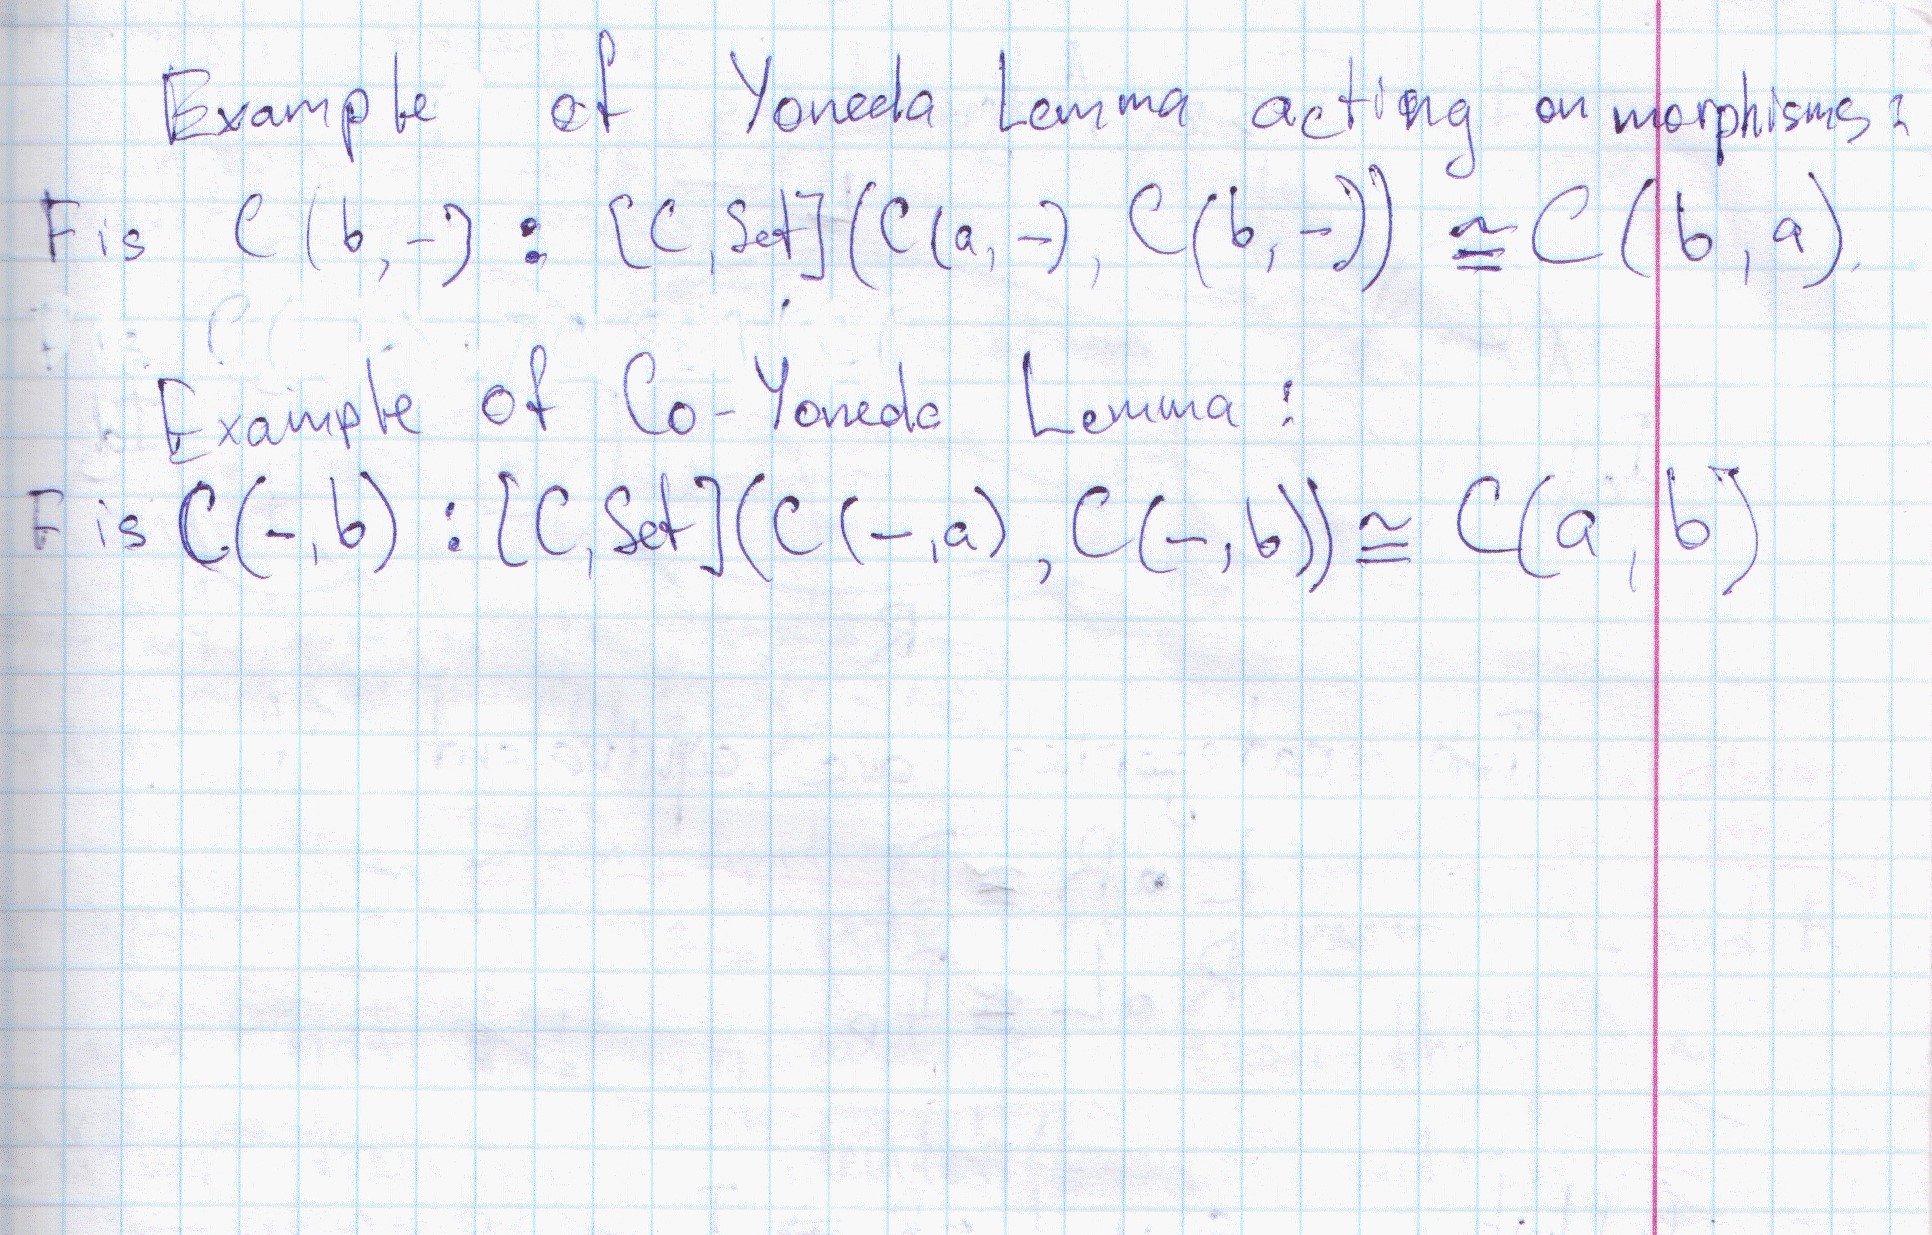 Example of Yoneda Lemma acting on morphisms:
F is C(b,-) : [C,Set](C(a,-), C(b,-)) ≅ C(b,a).
Example of Co-Yoneda Lemma:
F is C(-,b) : [C,Set](C(-,a), C(-,b)) ≅ C(a,b)